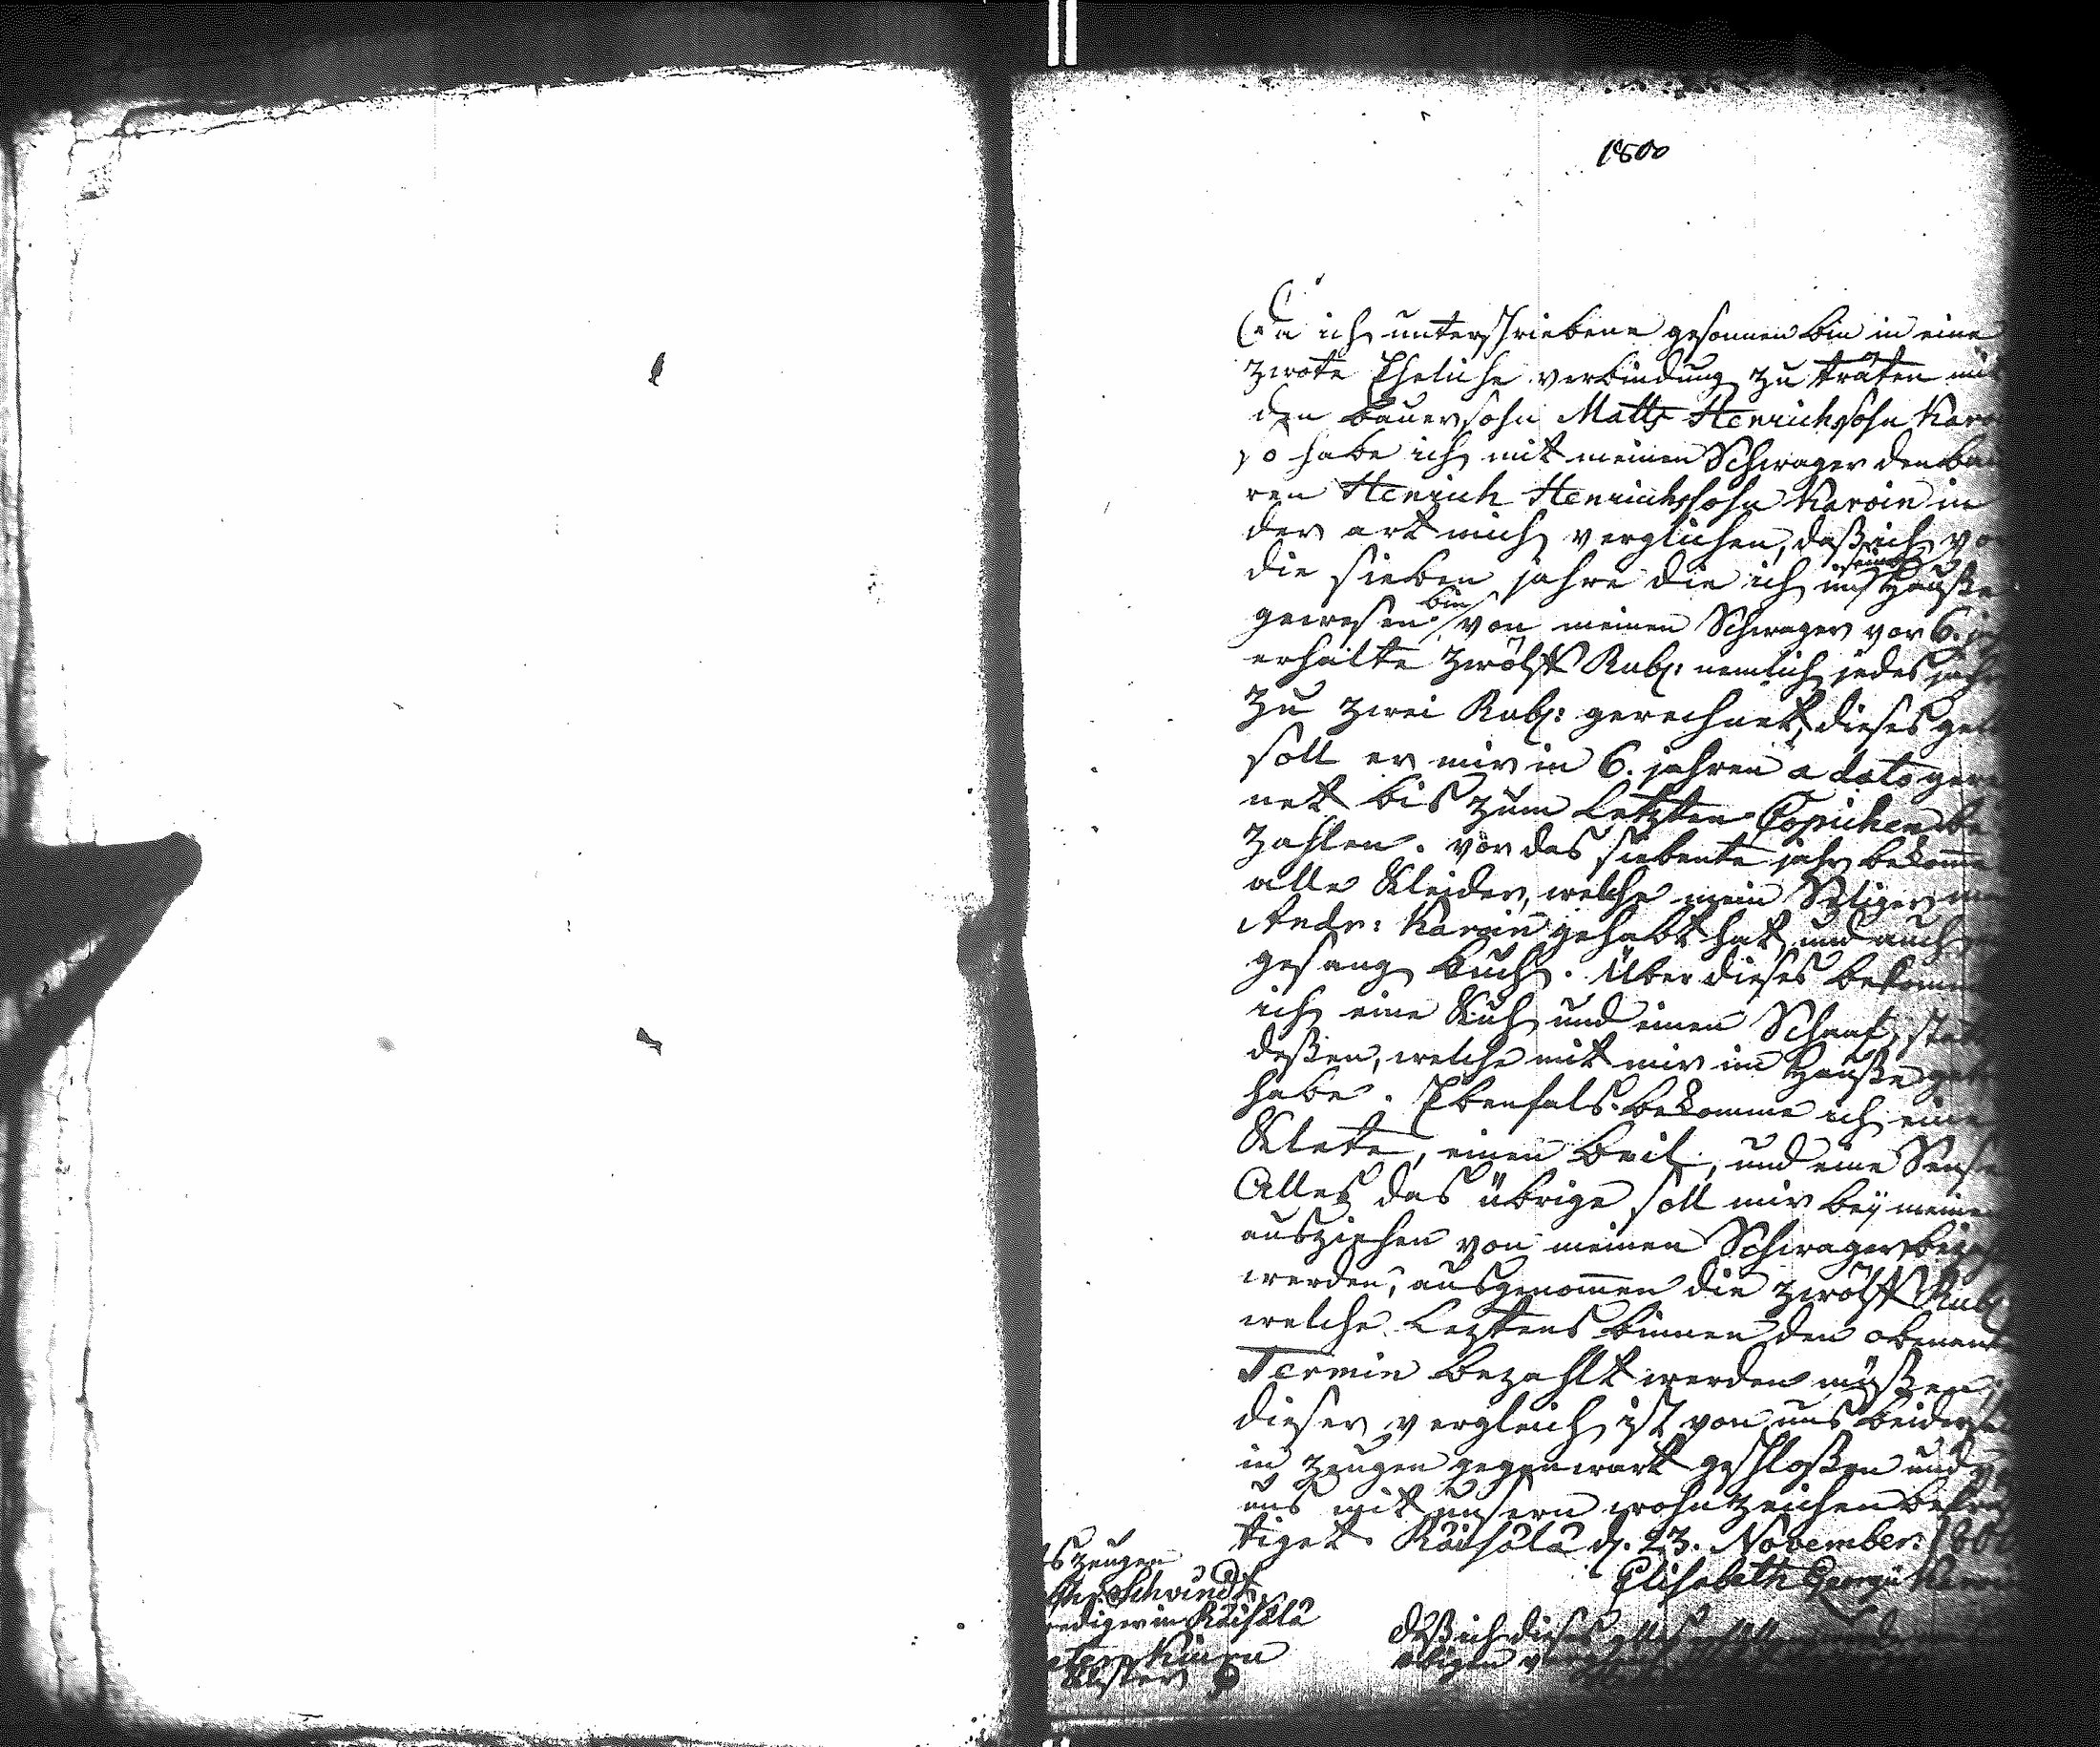 1800
Da ich unterschriebene gesonnen bin in eine
zwote Eheliche verbindung zu träten mit
den bauersohn Matts Henrichssohn Karo
so habe ich mit meinen Schwager den bau
ren Henrich Henrichssohn Karoin in
der art mich verglichen, daß ich vor
die sieben jahre die ich im seinen Hauße
gewesen bin von meinen Schwager vor 6. jah
erhalte zwölff Rub: nemlich jedes jahr
zu zwei Rub: gerechnet, dieses geld
soll er mir in 6. jahren a dato gere
net bis zum Letzten Copicken be
zahlen. vor das siebente jahr bekomme
alle Kleider, welche mein Seliger ma
Andr: Karoin gehabt hat, und auch
gesang buch. Über dieses bekomme
ich eine Kuh und einen Schaaf, statt
deßen, welche mit mir im Hauße ge
habe. Ebenfals bekomme ich eine
Klete, einen beil, und eine Sense
Alles das übrige soll mir beÿ meinen
ausziehen von meinen Schwager beza
werden, ausgenom̅en die zwölff Rub
welche Leztens binnen den obenant
Termin bezahlt werden müßen.
dieser vergleich ist von uns beiderseit
in zeugen gegenwart geschloßen und
uns mit unsern wohnzeichen bekräf
tiget. Räisälä d. 23. November: 180
Elisabeth Georgii Karoin
ls zeugen
Schvindt
rediger in Räisälä
eter Kiuru
Küster
daß ich dieses alles
obigen